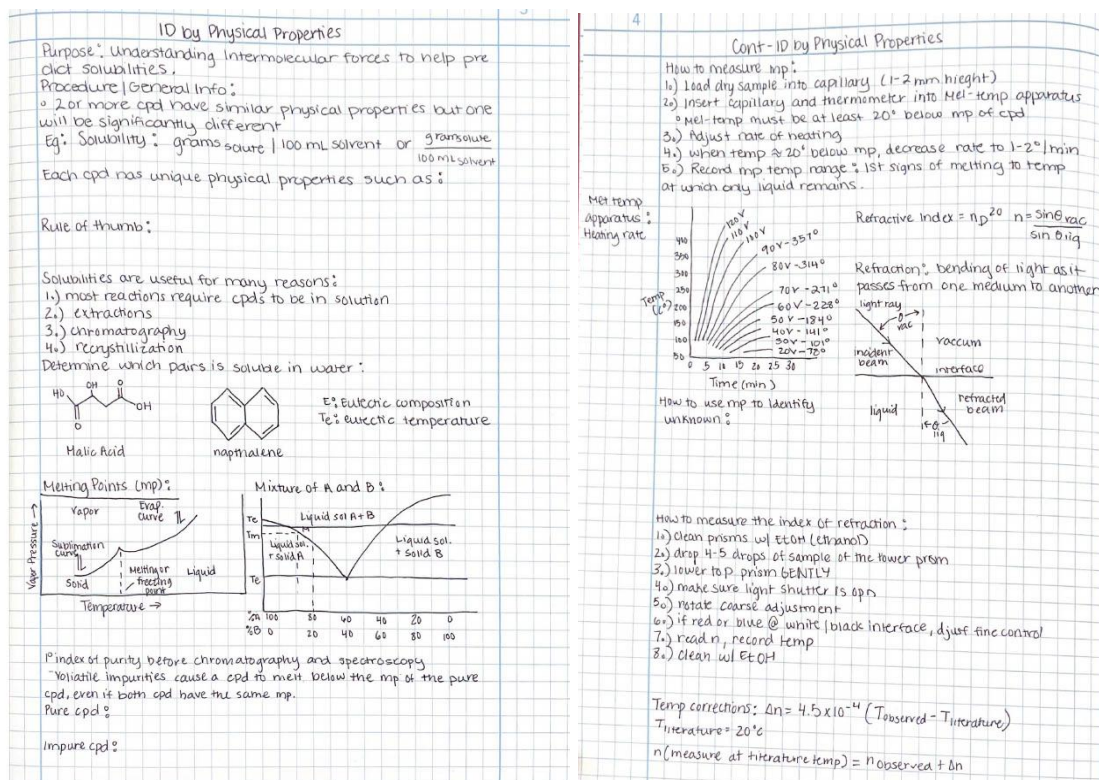 ID by Physical Properties
Purpose: understanding Intermolecular forces to help pre
dict solubilities.
Procedure/General Info:
° 2 or more cpd have similar physical properties but one
will be significantly different
Eg: Solubility: grams solute / 100 mL solvent or gramsolute
100 mL solvent
Each cpd has unique physical properties such as:
Rule of thumb:
Solubilities are useful for many reasons:
1.) most reactions require cpds to be in solution
2.) extractions
3.) chromatography
4.) recrystillization
Determine which pairs is soluble in water:
HO
OH
O
OH
O
E: Eutectic composition
Te: eutectic temperature
Malic Acid
napthalene
Melting Points (mp):
Vapor Pressure →
Vapor
Evap.
curve
Sublimation
curve
Solid
Melting or
freezing
point
Liquid
Temperature →
Mixture of A and B:
Te
Liquid sol A+B
Tm
M
Liquid sol.
+ solid A
Liquid sol.
+ solid B
Te
%A 100 80 60 40 20 0
%B 0 20 40 60 80 100
1° index of purity before chromatography and spectroscopy
-Voliatile impurities cause a cpd to melt below the mp of the pure
cpd, even if both cpd have the same mp.
Pure cpd:
Impure cpd:
4
Cont-ID by Physical Properties
How to measure mp:
1.) Load dry sample into capillary (1-2 mm hieght)
2.) Insert capillary and thermometer into Mel-temp apparatus
° Mel-temp must be at least 20° below mp of cpd
3.) Adjust rate of heating
4.) when temp ≈ 20° below mp, decrease rate to 1-2°/min
5.) Record mp temp range: 1st signs of melting to temp
at which only liquid remains.
Mel temp
apparatus:
Heating rate
Temp
(C°)
400
350
300
250
200
150
100
50
120V
110V
100V
90V-357°
80V-314°
70V-271°
60V-228°
50V-184°
40V-141°
30V-101°
20V-78°
0 5 10 15 20 25 30
Time (min)
Refractive Index = nD²⁰ n = sinθvac
sin θliq
Refraction: bending of light as it
passes from one medium to another
light ray
θ
vac
vaccum
incident
beam
interface
liquid
refracted
beam
θ
liq
How to use mp to identify
unknown:
How to measure the index of refraction:
1.) clean prisms w/ EtOH (ethanol)
2.) drop 4-5 drops of sample of the lower prism
3.) lower top prism GENTLY
4.) make sure light shutter is opn
5.) rotate coarse adjustment
6.) if red or blue @ white/black interface, djust fine control
7.) read n, record temp
8.) clean w/ EtOH
Temp corrections: Δn = 4.5x10⁻⁴ (Tobserved - Tliterature)
Tliterature = 20°C
n(measure at literature temp) = nobserved + Δn